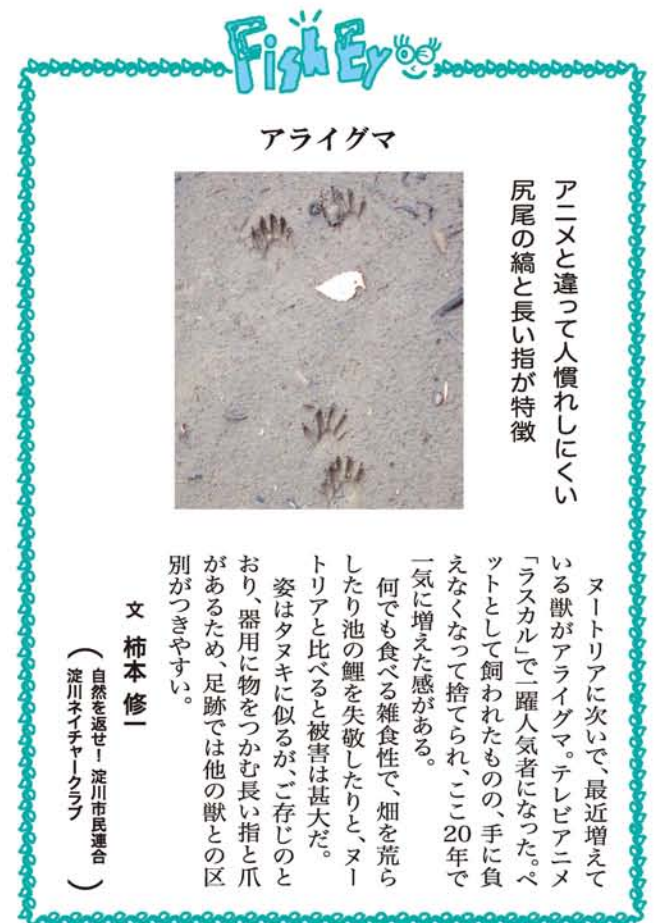 Fish Ey
アライグマ
アニメと違って人慣れしにくい
尻尾の縞と長い指が特徴
ヌートリアに次いで、最近増えて
いる獣がアライグマ。テレビアニメ
「ラスカル」で一躍人気者になった。ペ
ットとして飼われたものの、手に負
えなくなって捨てられ、ここ20年で
一気に増えた感がある。
何でも食べる雑食性で、畑を荒ら
したり池の鯉を失敬したりと、ヌー
トリアと比べると被害は甚大だ。
姿はタヌキに似るが、ご存じのと
おり、器用に物をつかむ長い指と爪
があるため、足跡では他の獣との区
別がつきやすい。
文 柿本 修一
(自然を返せ! 淀川市民連合
淀川ネイチャークラブ)